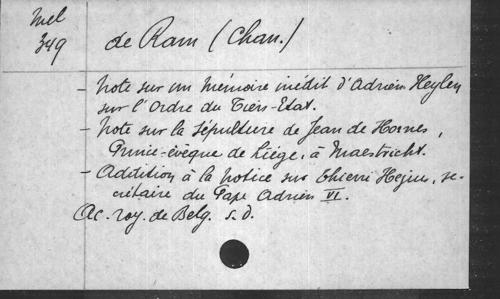 Mel
349
de Ram (Chan.)
- Note sur un mémoire inédit d'Adrien Heylen
sur l'Ordre du Tiers-Etat.
- Note sur la sépulture de Jean de Hornes,
Prince-évêque de Liége, à Maestricht.
- Addition à la notice sur Thierri Hezius, se-
crétaire du Pape Adrien VI.
Ac. roy. de Belg. s. d.